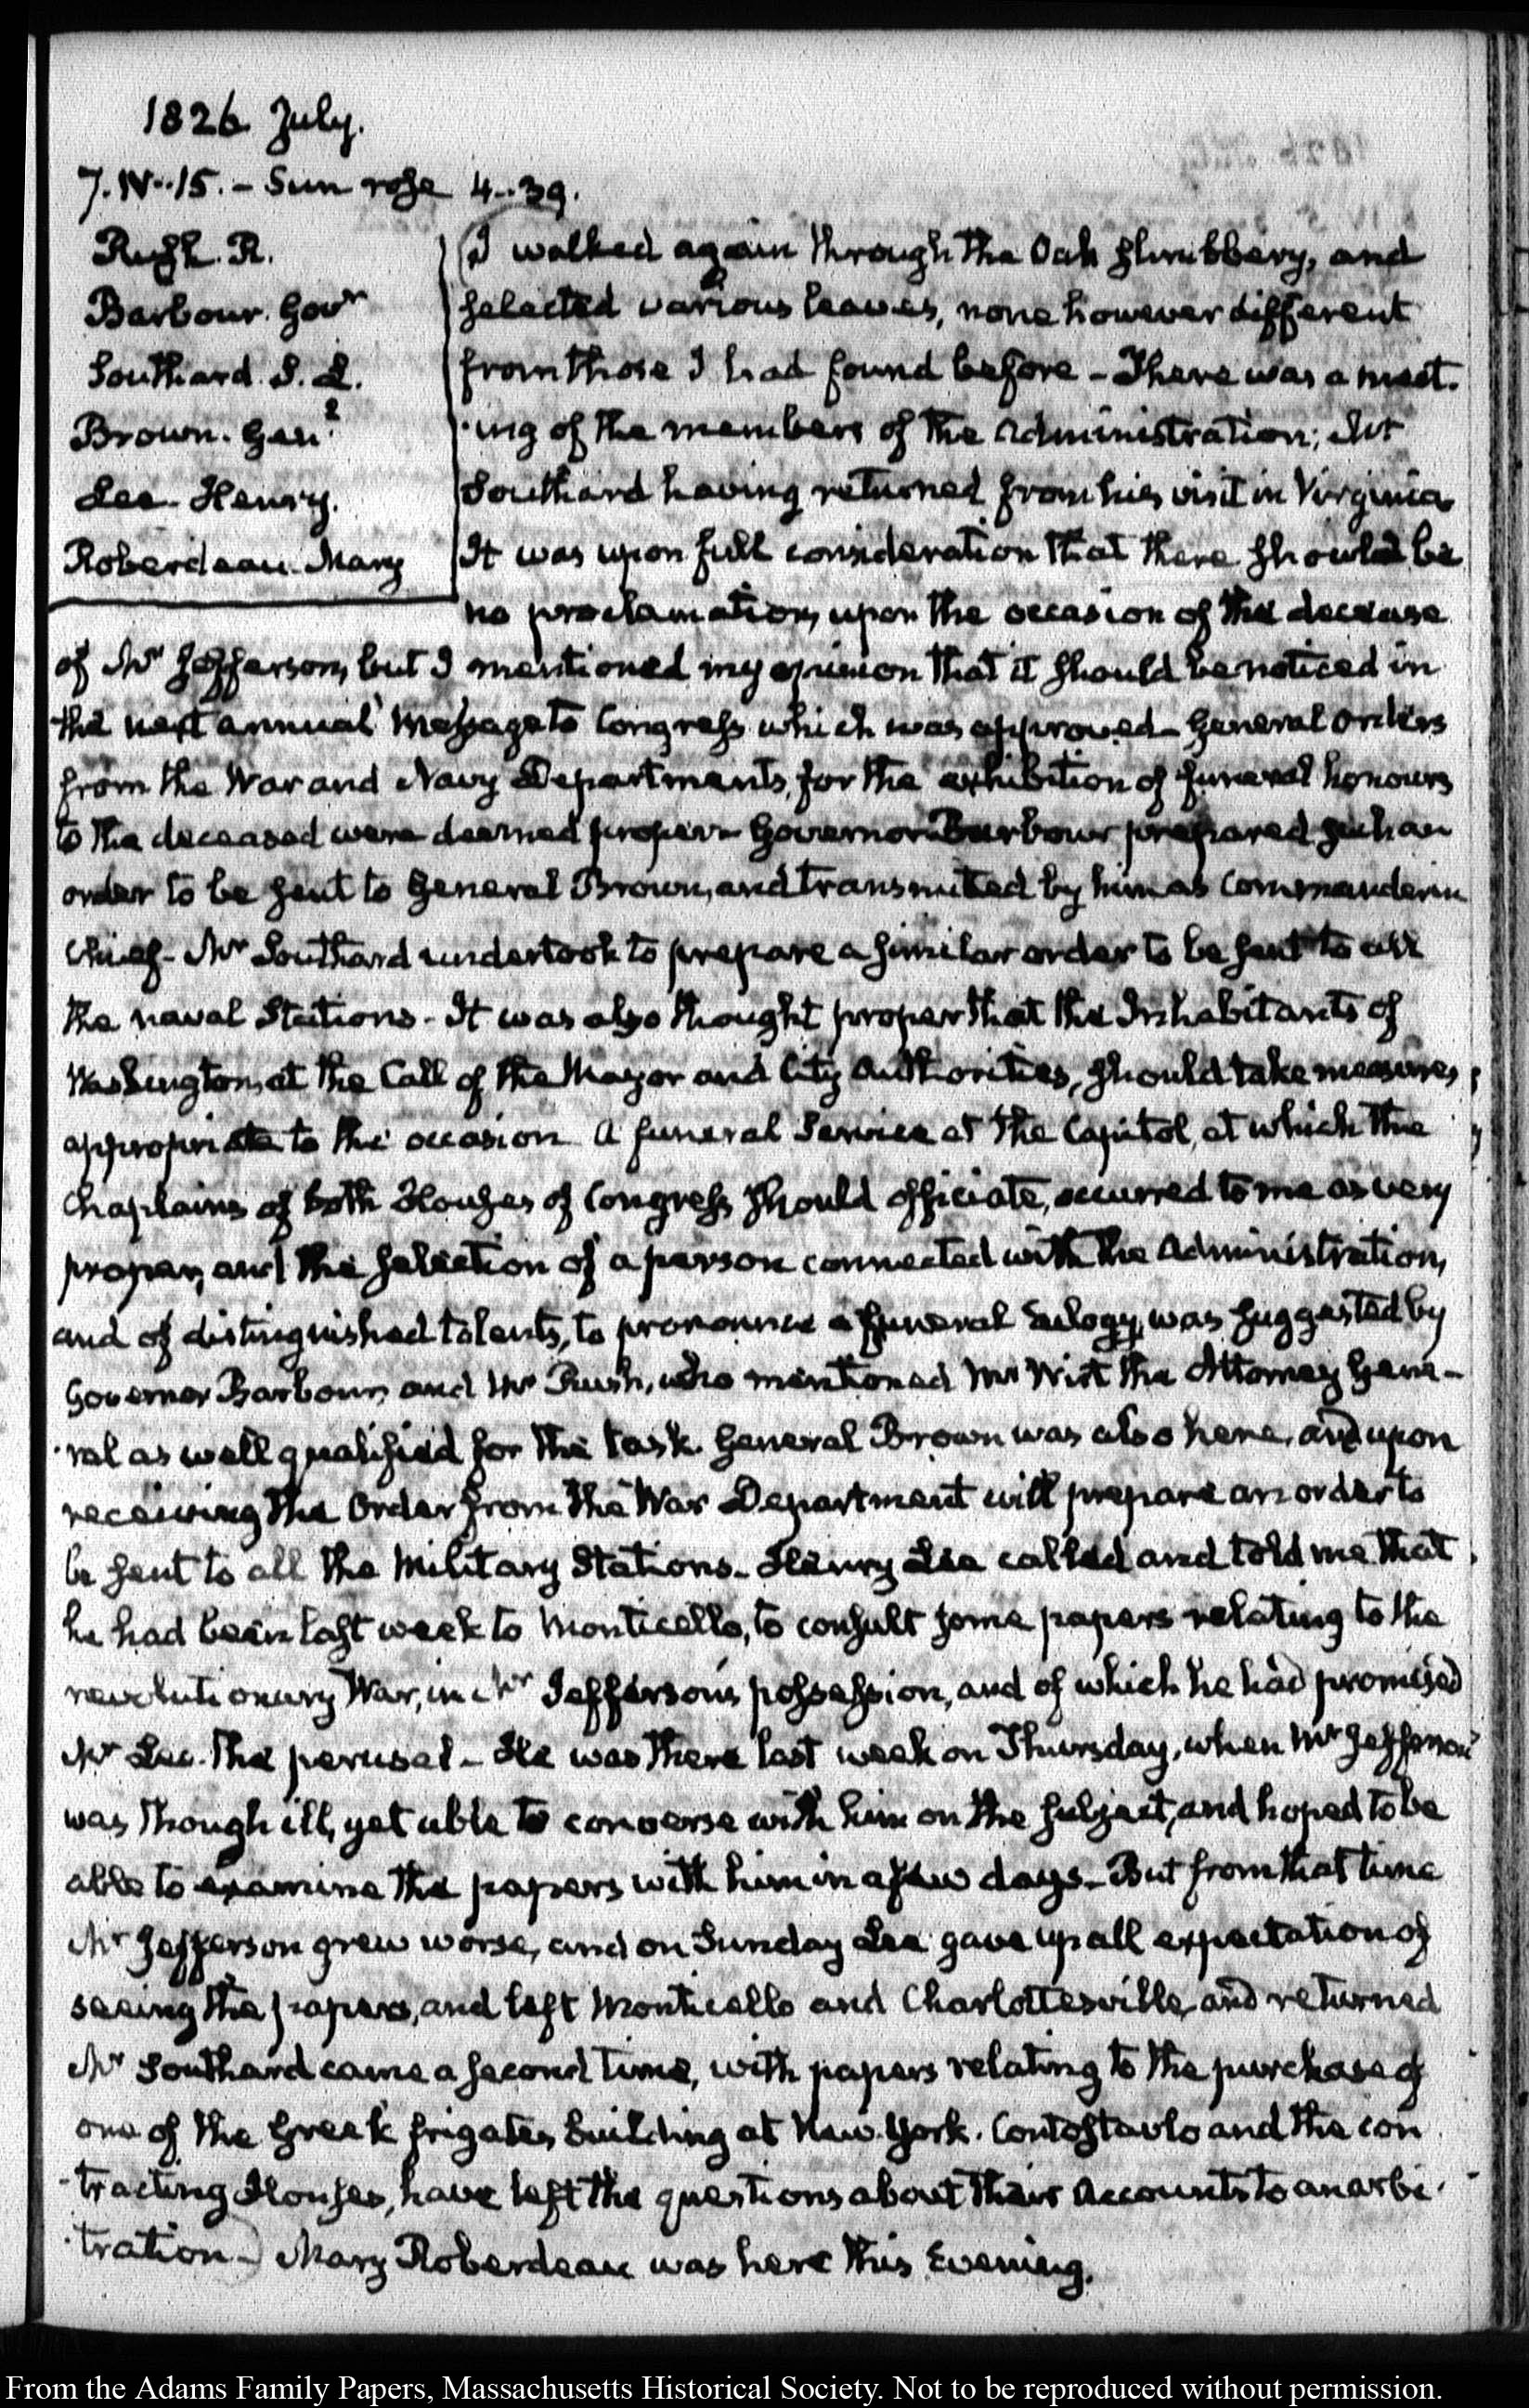 1826. July.
7. IV..15. - Sun rose 4..39.
Rush. R.
Barbour. Govr
Southard. S. L.
Brown. Genl
Lee. Henry.
Roberdeau. Mary
I walked again through the Oak shrubbery, and
selected various leaves, none however different
from those I had found before - There was a meet-
-ing of the members of the Administration; Mr
Southard having returned from his visit in Virginia
It was upon full consideration that there should be
no proclamation, upon the occasion of the decease
of Mr Jefferson, but I mentioned my opinion that it should be noticed in
the next annual Message to Congress which was approved - General Orders
from the War and Navy Departments, for the exhibition of funeral honours
to the deceased were deemed proper - Governor Barbour prepared such an
order to be sent to General Brown, and transmitted by him as Commander in
Chief - Mr Southard undertook to prepare a similar order to be sent to all
the naval Stations - It was also thought proper that the Inhabitants of
Washington, at the Call of the Mayor and City Authorities, should take measures
appropriate to the occasion A funeral Service at the Capitol, at which the
Chaplains of both Houses of Congress should officiate, occurred to me as very
proper, and the selection of a person connected with the Administration,
and of distinguished talents, to pronounce a funeral Eulogy, was suggested by
Governor Barbour, and Mr Rush, who mentioned Mr Wirt the Attorney Gene-
-ral as well qualified for the task. General Brown was also here, and upon
receiving the Order from the War Department will prepare an order to
be sent to all the Military Stations - Henry Lee called and told me that
he had been last week to Monticello, to consult some papers relating to the
revolutionary War, in Mr Jefferson's possession, and of which he had promised
Mr Lee the perusal - He was there last week on Thursday, when Mr Jefferson
was though ill, yet able to converse with him on the subject, and hoped to be
able to examine the papers with him in a few days - But from that time
Mr Jefferson grew worse, and on Sunday Lee gave up all expectation of
seeing the papers, and left Monticello and Charlottesville, and returned
Mr Southard came a second time, with papers relating to the purchase of
one of the Greek frigates building at New-York. Contostavlo and the con
-tracting Houses, have left the questions about their Accounts to an arbi-
-tration - Mary Roberdeau was here this Evening.
From the Adams Family Papers, Massachusetts Historical Society. Not to be reproduced without permission.